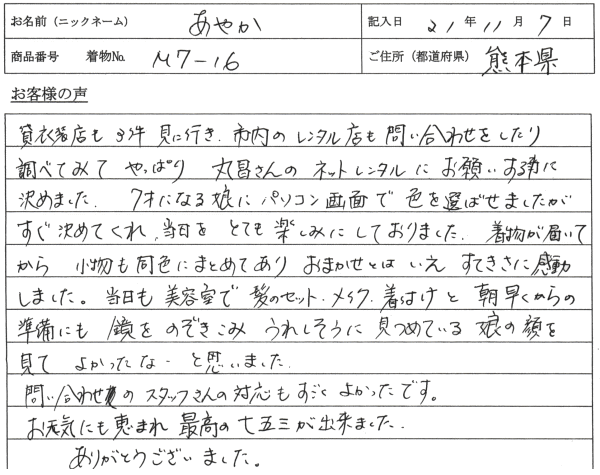 お名前（ニックネーム） あやか 記入日 21年11月7日
商品番号 着物No. M7-16 ご住所（都道府県） 熊本県
お客様の声
貸衣装店も3件見に行き、市内のレンタル店も問い合わせをしたり
調べてみて やっぱり 丸昌さんの ネットレンタルに お願いする事に
決めました. 7才になる娘に パソコン画面で 色を選ばせましたが
すぐ決めてくれ、当日を とても 楽しみに しておりました. 着物が届いて
から 小物も同色にまとめてあり おまかせとは いえ すてきさに感動
しました。当日も 美容室で 髪のセット.メイク.着付けと 朝早くからの
準備にも 鏡を のぞきこみ うれしそうに 見つめている 娘の顔を
見て よかったなーと思いました.
問い合わせの スタッフさんの対応もすごく よかったです。
お天気にも恵まれ 最高の 七五三が出来ました.
ありがとうございました。